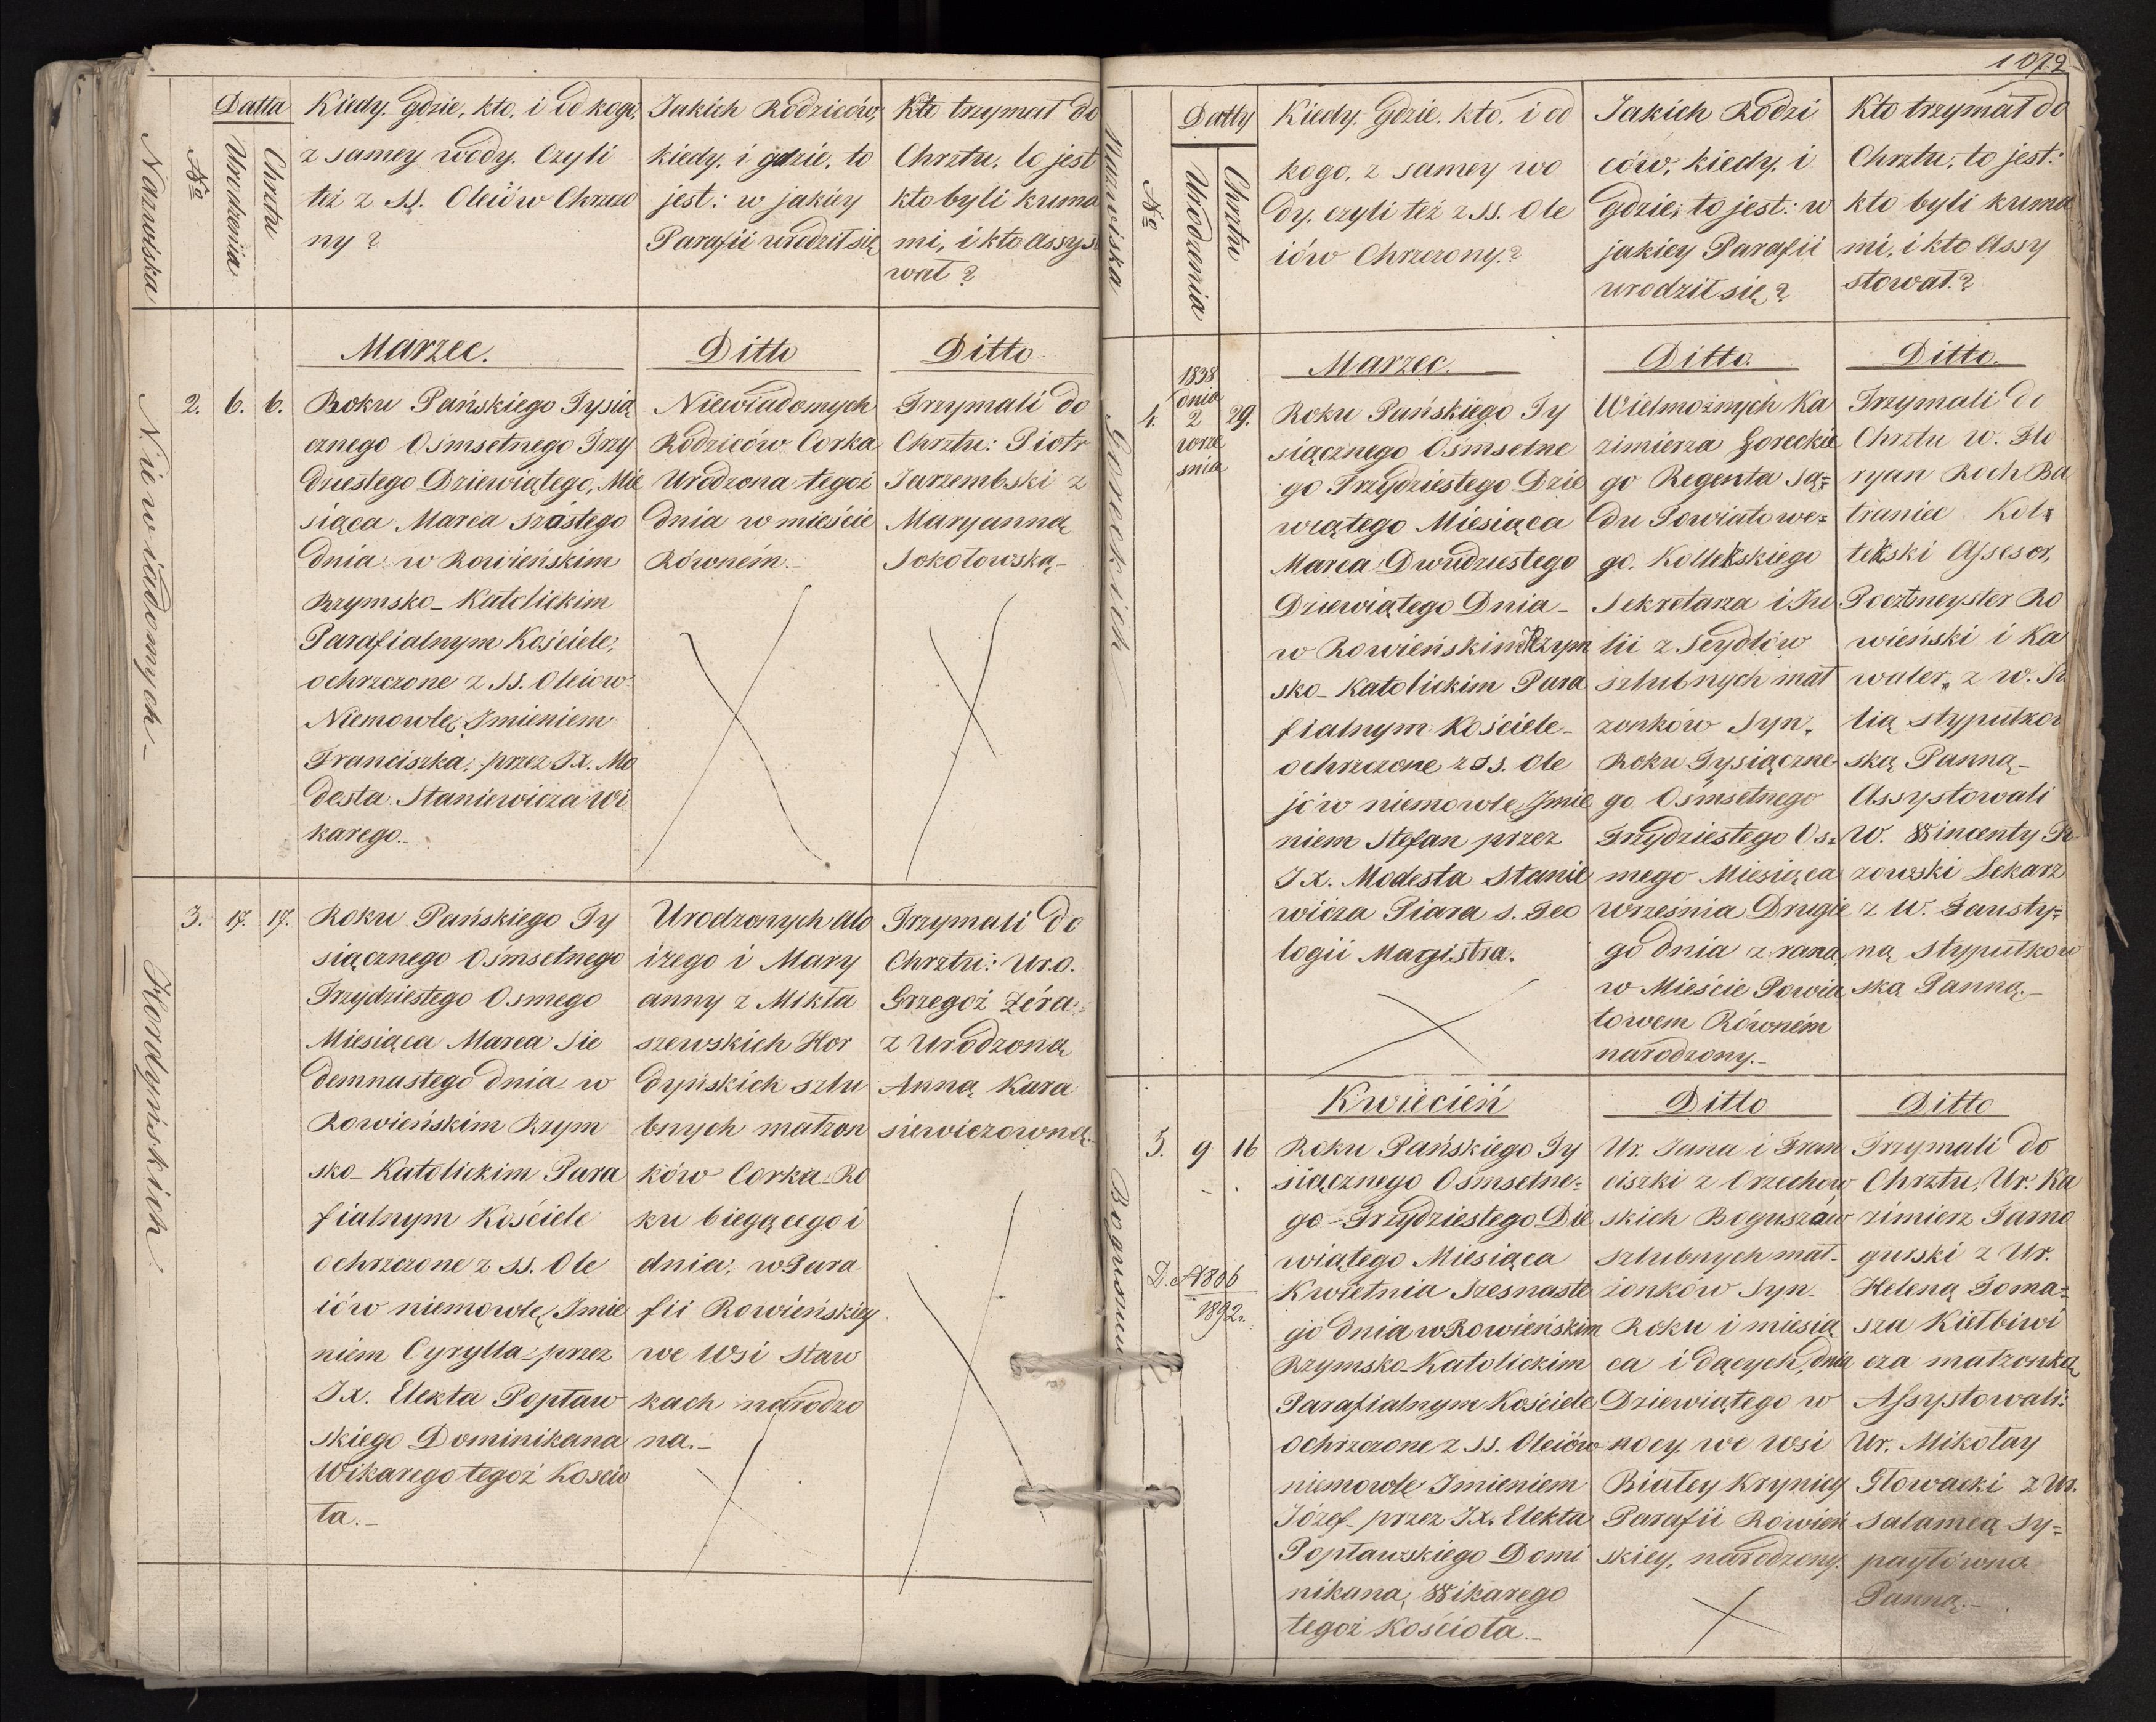 Datta
Nazwiska
No
Urodzenia
Chrztu
Kiedy, gdzie, kto, i od kogo,
z samey wody, czyli
też z SS. Oleiów Chrzczo
ny?
Jakich Rodziców,
kiedy, i gdzie, to
jest: w jakiey
Parafii urodził się
Kto trzymał do
Chrztu, to jest
kto byli kuma
mi, i kto Assys
wał?
Marzec.
Ditto
Ditto
Niewiadomych
2. 6. 6.
Roku Pańskiego Tysią
cznego Ośmsetnego Trzy
dziestego Dziewiątego, Mie
siąca Marca szostego
dnia w Rowieńskim
Rzymsko-Katolickim
Parafialnym Kościele,
ochrzczone z SS. Oleiow
Niemowlę, Imieniem
Franciszka, przez Jx. Mo
desta Staniewicza Wi
karego.
Niewiadomych
Rodziców Corka
Urodzona tegoż
dnia w mieście
Równém.
Trzymali do
Chrztu: Piotr
Jarzembski z
Maryanną
Sokołowską
Hordyńskich
3. 17. 17.
Roku Pańskiego Ty
siącznego Ośmsetnego
Trzydziestego Osmego
Miesiąca Marca Sie
demnastego dnia w
Rowieńskim Rzym
sko-Katolickim Para
fialnym Kościele
ochrzczone z SS. Ole
iów niemowlę, Imie
niem Cyrylla przez
Jx. Elekta Popław
skiego Dominikana
Wikarego tegoż Koscio
ła.
Urodzonych Alo
izego i Mary
anny z Mikła
szewskich Hor
dyńskich szlu
bnych małżon
ków Corka Ro
ku biegącego i
dnia, w Para
fii Rowieńskiey
we Wsi Staw
kach narodzo
na.
Trzymali do
Chrztu: Uro.
Grzegoż Żéra=
z Urodzoną
Anną Kara
siewiczowną.
1072
Datty
Nazwiska
No
Urodzenia
Chrztu
Kiedy, Gdzie, kto, i od
kogo, z samey wo
dy, czyli też z SS. Ole
iów Chrzczony?
Jakich Rodzi
ców, kiedy, i
Gdzie, to jest: w
jakiey Parafii
urodził się?
Kto trzymał do
Chrztu, to jest:
kto byli kuma
mi, i kto Assy
stował?
Marzec.
Ditto.
Ditto.
Goreckich
4.
1838
dnia
2
wrze
śnia
29.
Roku Pańskiego Ty
siącznego Ośmsetne
go Trzydziestego Dzie
wiątego Miesiąca
Marca Dwudziestego
Dziewiątego Dnia
w Rowieńskim Rzym
sko-Katolickim Para
fialnym Kościele
ochrzczone z SS. Ole
jów niemowlę, Imie
niem Stefan przez
Jx. Modesta Stanie
wicza Piara S. Teo
logii Magistra.
Wielmożnych Ka
zimierza Goreckie
go Regenta Są=
du Powiatowe=
go, Kolleżskiego
Sekretarza i Ju
lii z Seydlów
szlubnych mał
żonków Syn,
Roku Tysiączne
go Ośmsetnego
Trzydziestego Os=
mego Miesiąca
września Drugie
go dnia z rana,
w Mieście Powia
towem Równém
narodzony.
Trzymali do
Chrztu W. Flo
ryan Roch Ba
traniec Kol=
leżski Assesor,
Pocztmeyster Ro
wieński i Ka
waler, z W. Ju
lią Stypułkow
ską Panną
Assystowali
W. Wincenty
zowski Lekarz
z W. Fausty=
ną Stypułkow
ską Panną.
Kwiecień
Ditto
Ditto
Boguszów
5. 9 16
D. N 1806
1892r.
Roku Pańskiego Ty
siącznego Ośmsetne=
go Trzydziestego Die
wiątego Miesiąca
Kwietnia Szesnaste
go dnia w Rowieńskim
Rzymsko-Katolickim
Parafialnym Kościele
ochrzczone z SS. Oleiów
niemowlę Imieniem
Józef przez Jx. Elekta
Popławskiego Domi
nikana, Wikarego
tegoż Kościoła.
Ur. Jana i Fran
ciszki z Orzechow
skich Boguszów
szlubnych mał
żonków Syn
Roku i miesią
ca idących, dnia
Dziewiątego w
nocy we wsi
Białey Krynicy
Parafii Rowień
skiey, narodzony.
Trzymali do
Chrztu, Ur. Ka
zimierz Tarno
gurski z Ur.
Heleną Toma=
sza Kiełbiwi
cza małżonką
Assystowali:
Ur. Mikołay
Głowacki z Ur.
Salameą Sy=
payłówna
Panną.